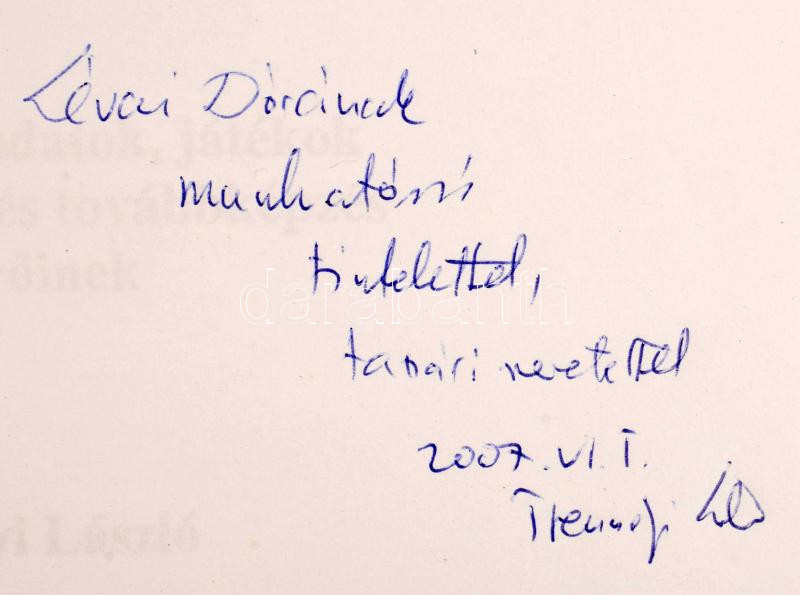 Lévai Dórának
munkatársi
tisztelettel,
tanári szeretettel
2007. VI. 1.
adatok, játékok
és továbbképzés
őinek
yi László
darabanth